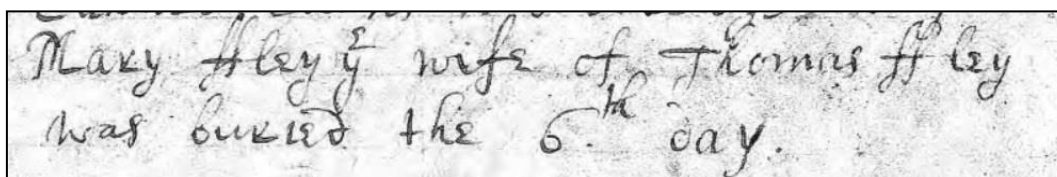 Mary ffley yᵉ wife of Thomas ffley
was buried the 6.ᵗʰ day.